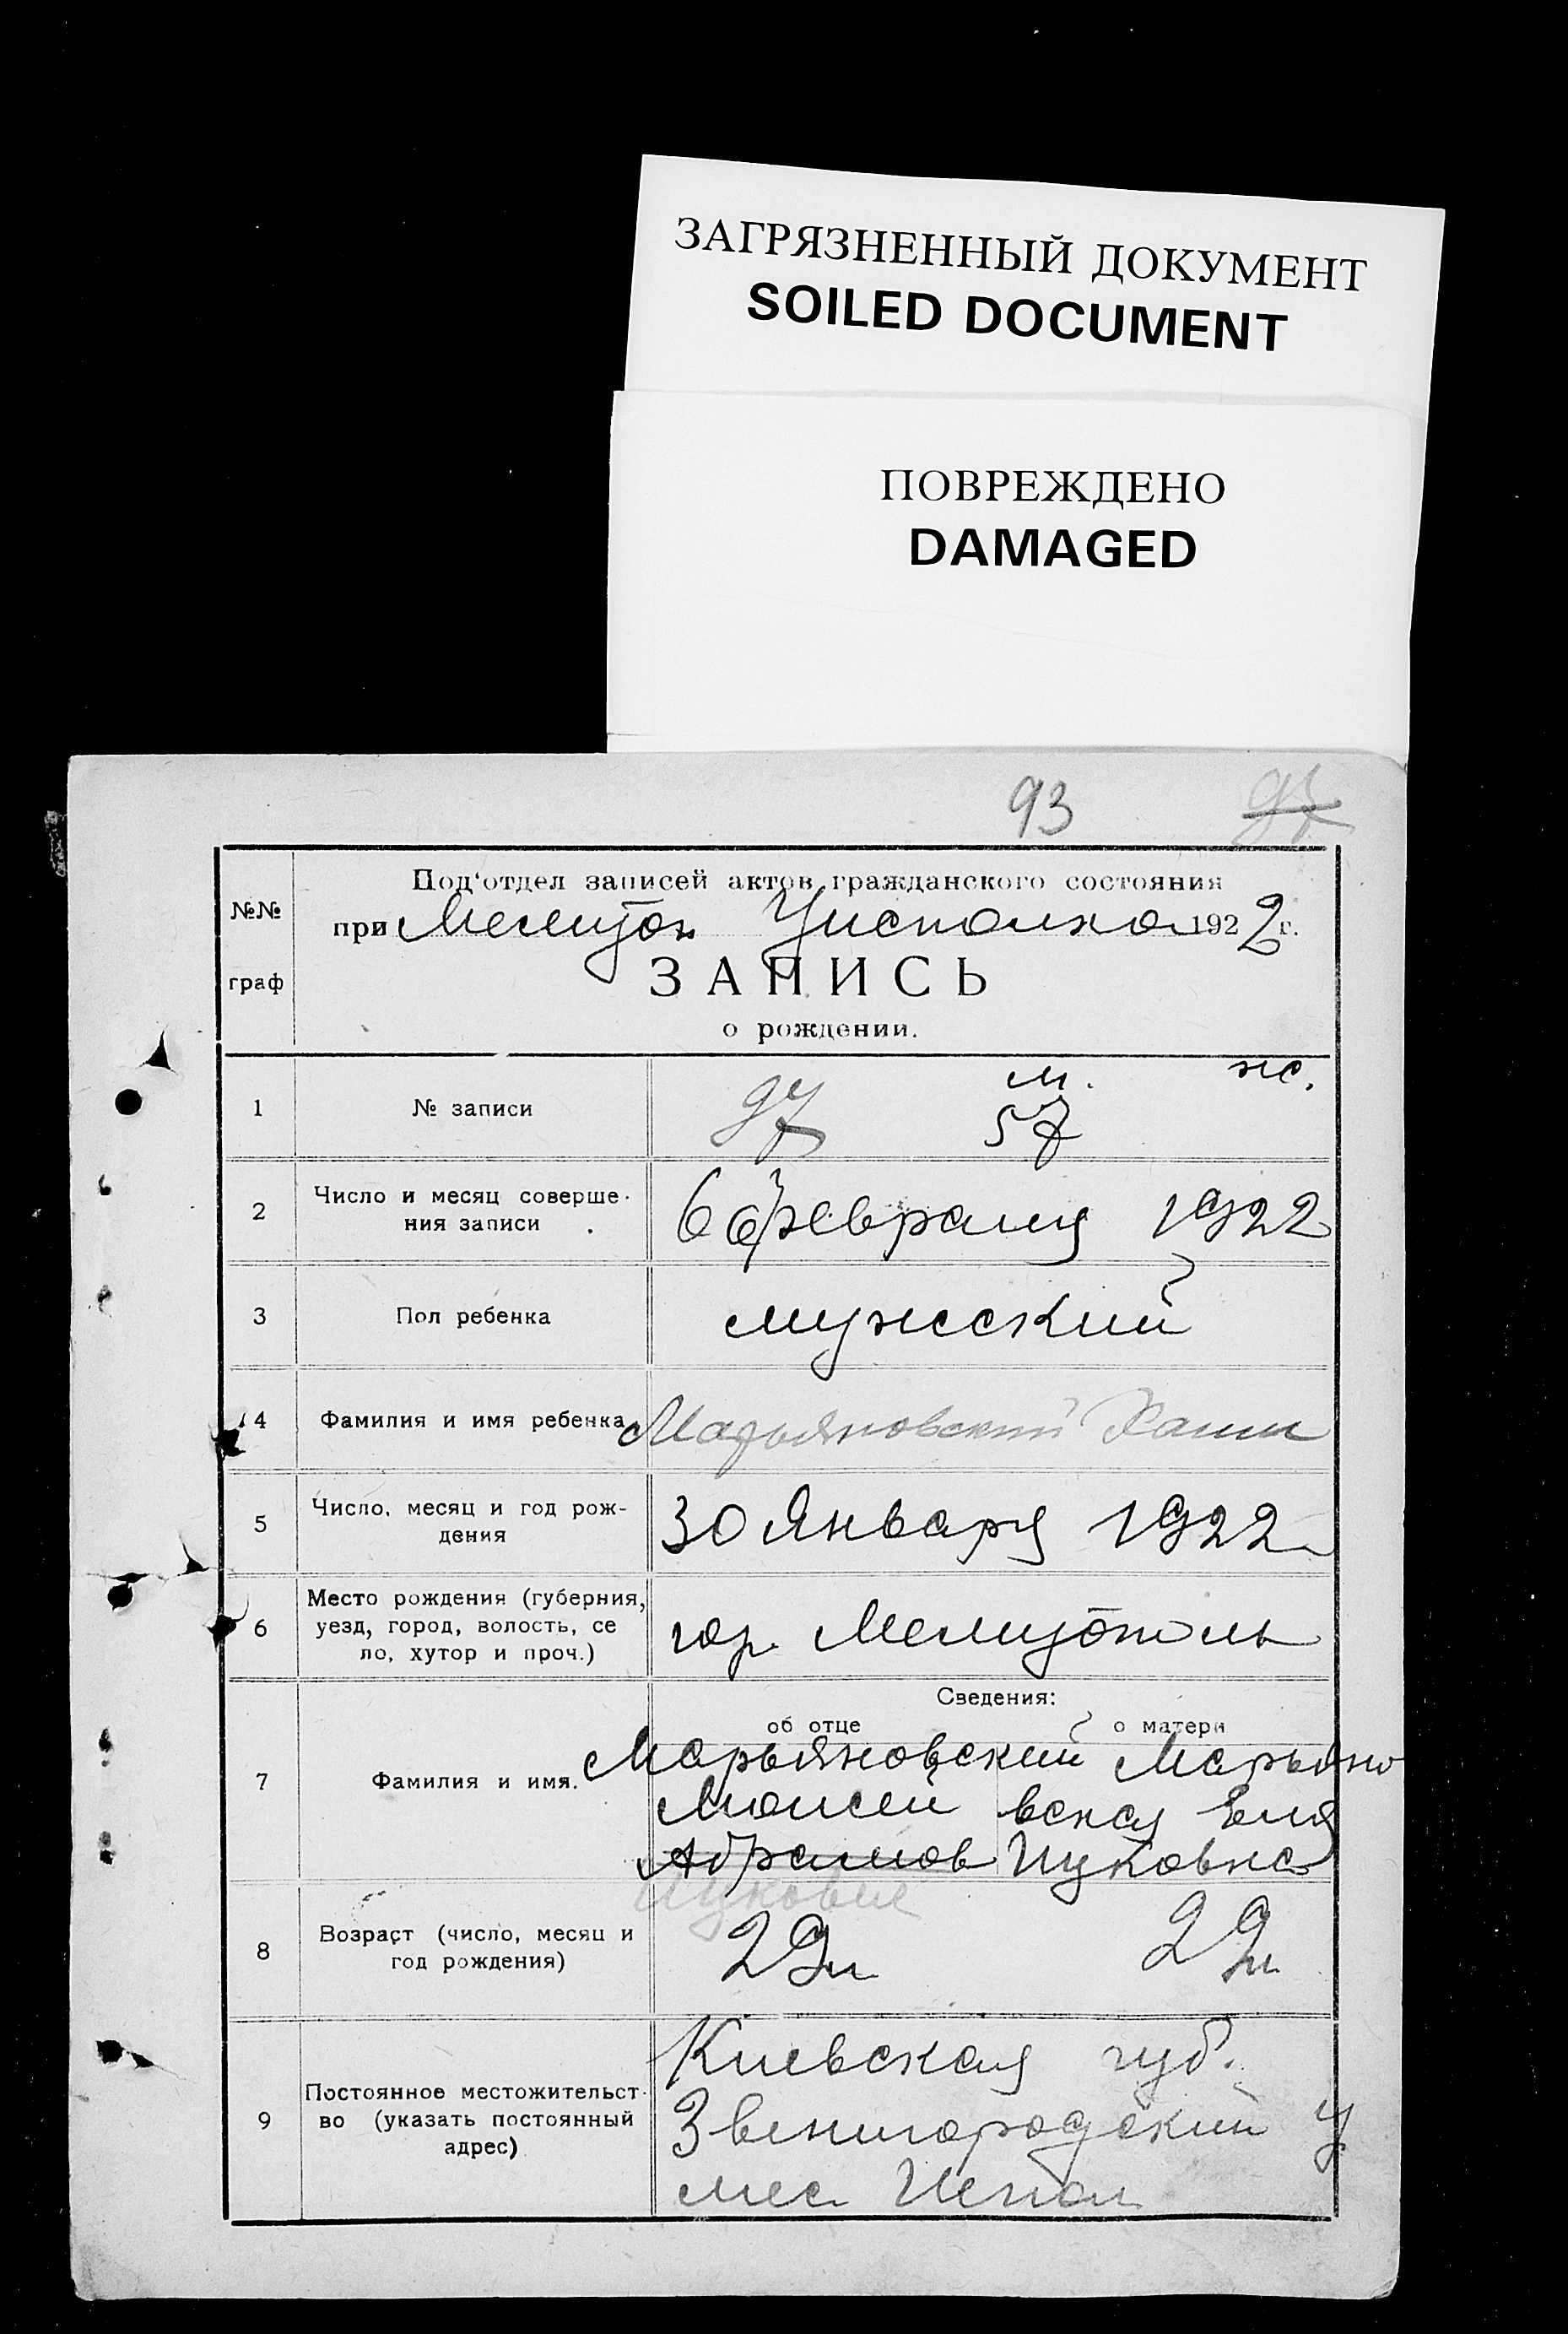 ЗАГРЯЗНЕННЫЙ ДОКУМЕНТ
SOILED DOCUMENT
ПОВРЕЖДЕНО
DAMAGED
93
97
№№
граф
Под‘отдел записей актов гражданского состояния
при Мелитоп Уисполко 1922 г.
ЗАПИСЬ
о рождении.
м. ж.
1 № записи 97 57
2 Число и месяц соверше-
ния записи
6 февраля 1922
3 Пол ребенка мужский
4 Фамилия и имя ребенка Марьяновский
5 Число, месяц и год рож-
дения
30 Января 1922
6 Место рождения (губерния,
уезд, город, волость, се
ло, хутор и проч.)
гор. Мелитополь
Сведения:
об отце о матери
7 Фамилия и имя.
Марьяновский Марьяно
Моисей вская Еля
Абрамов Ицковна
Ицкович
8 Возраст (число, месяц и
год рождения)
29 л 29 л
9 Постоянное местожительст-
во (указать постоянный
адрес)
Киевская губ.
Звенигородский у
мес.